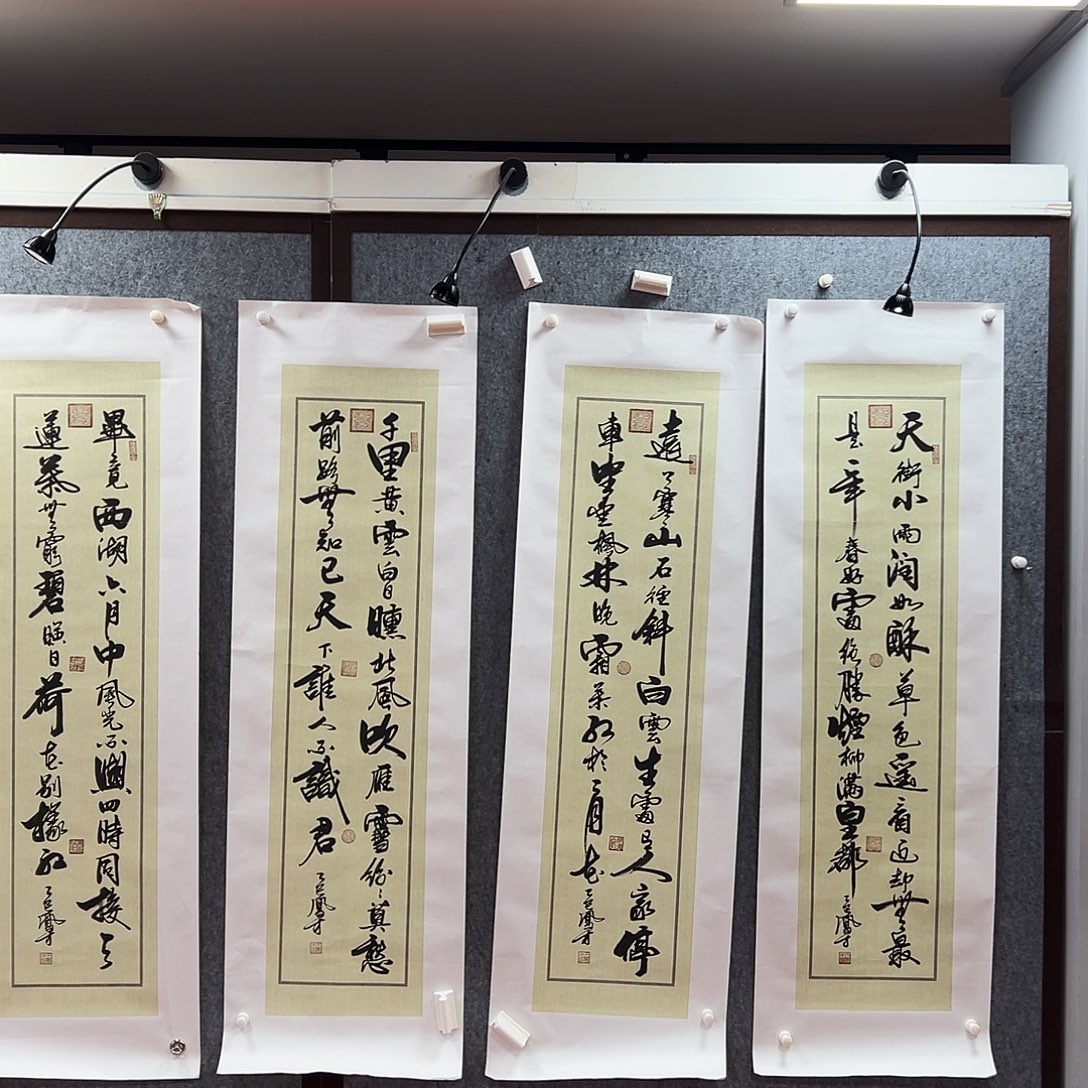 天街小雨潤如酥草色遥看近却無最
是一年春好處絶勝煙柳滿皇都
遠上寒山石徑斜白雲生處有人家停
車坐愛楓林晚霜葉紅於二月花
千里黄雲白日曛北風吹雁雪紛紛莫愁
前路無知己天下誰人不識君
畢竟西湖六月中風光不與四時同接天
蓮葉無窮碧映日荷花别樣紅